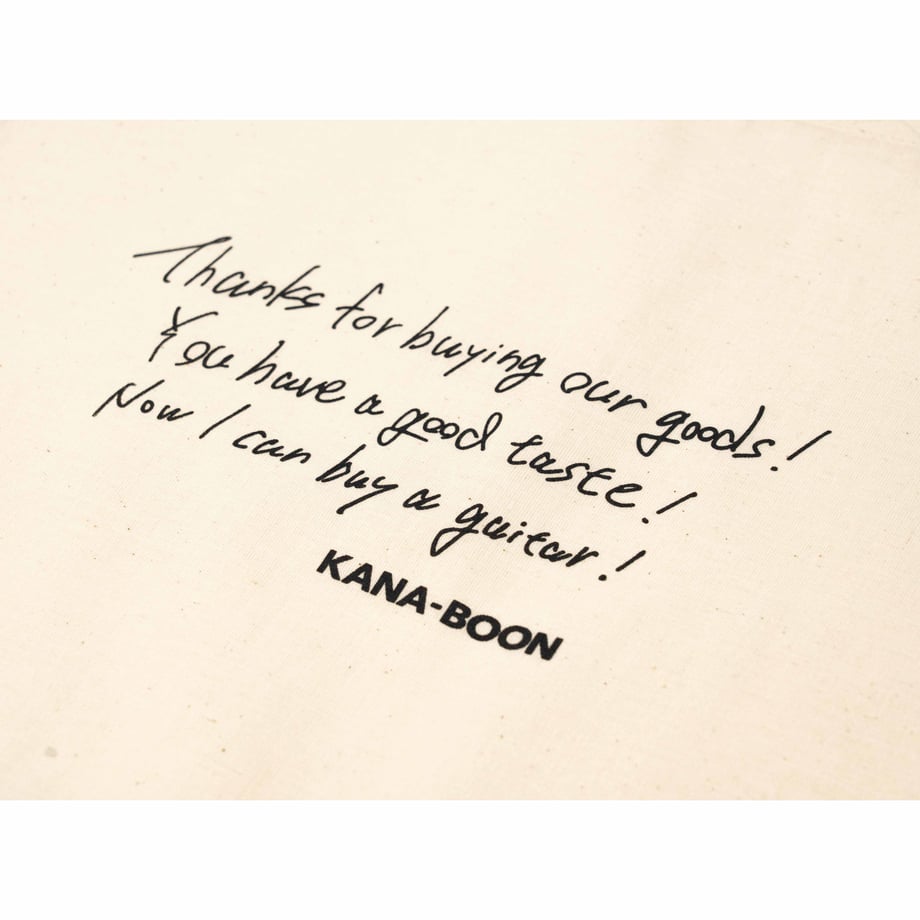 Thanks for buying our goods!
You have a good taste!
Now I can buy a guitar!
KANA-BOON